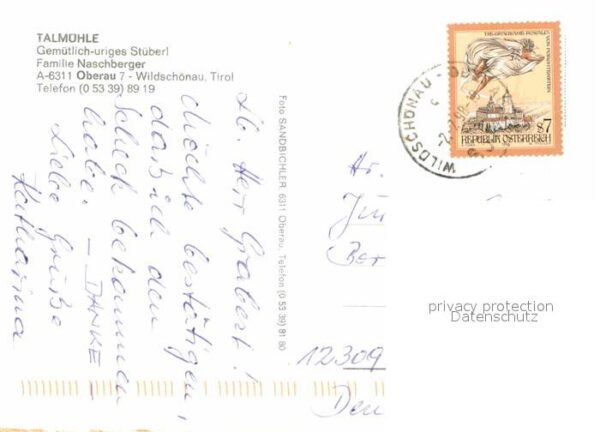 TALMÜHLE
Gemütlich-uriges Stüberl
Familie Naschberger
A-6311 Oberau 7 - Wildschönau, Tirol
Telefon (0 53 39) 89 19
Lb Herr Grabert!
möchte bestätigen,
daß ich den
Scheck bekommen
habe. — DANKE —
Liebe Grüße
Katharina
Foto SANDBICHLER, 6311 Oberau, Telefon (0 53 39) 81 80
WILDSCHÖNAU - 
S7
REPUBLIK ÖSTERREICH
Hr.
Jün
Ber
12309
Den
privacy protection
Datenschutz